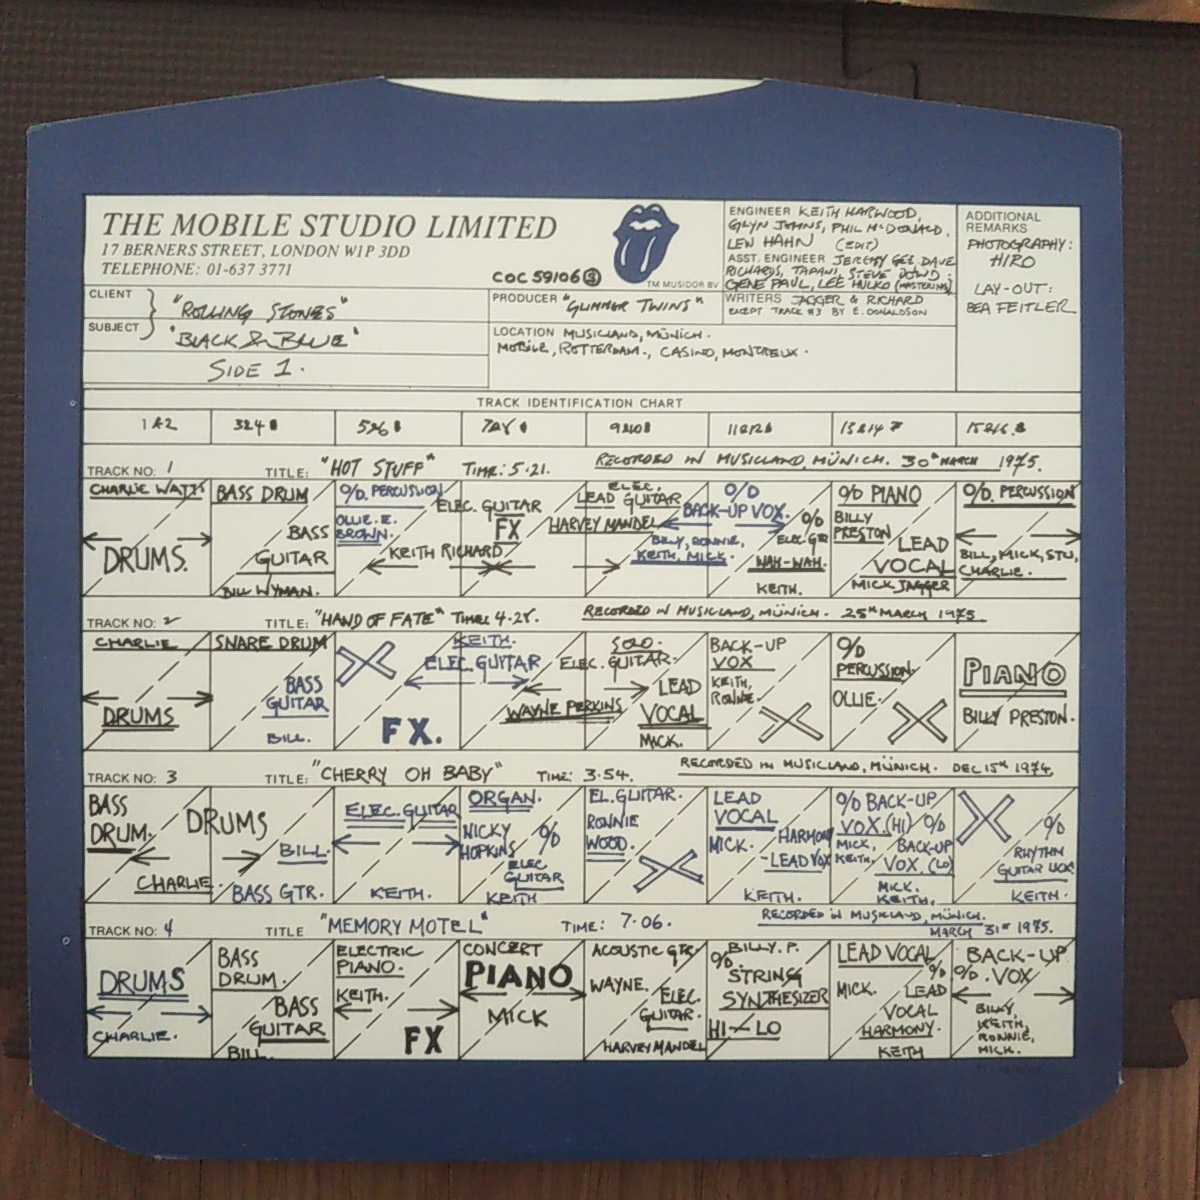 THE MOBILE STUDIO LIMITED
17 BERNERS STREET, LONDON W1P 3DD
TELEPHONE: 01-637 3771
COC 59106
TM MUSIDOR BV
ENGINEER KEITH HARWOOD,
GLYN JOHNS, PHIL McDONALD,
LEW HAHN (EDIT)
ASST. ENGINEER JEREMY GEE, DAVE
RICHARDS, TAPANI, STEVE DOWD.
GENE PAUL, LEE HULKO (MASTERING)
WRITERS JAGGER & RICHARD
EXCEPT TRACK #3 BY E. DONALDSON
ADDITIONAL
REMARKS
PHOTOGRAPHY:
HIRO
LAY-OUT:
BEA FEITLER
CLIENT
"ROLLING STONES"
SUBJECT
'BLACK & BLUE'
SIDE 1.
PRODUCER "GLIMMER TWINS"
LOCATION MUSICLAND, MÜNICH.
MOBILE, ROTTERDAM., CASINO, MONTREUX.
TRACK IDENTIFICATION CHART
1&2 3&4 5&6 7&8 9&10 11&12 13&14 15&16
TRACK NO: 1 TITLE: "HOT STUFF" TIME: 5.21. RECORDED IN MUSICLAND, MÜNICH. 30th MARCH 1975.
CHARLIE WATTS
DRUMS.
BASS DRUM
BASS
GUITAR
BILL WYMAN.
O/D. PERCUSSION
OLLIE. E.
BROWN.
ELEC. GUITAR
FX
KEITH RICHARD
ELEC.
LEAD GUITAR
HARVEY MANDEL
O/D
BACK-UP VOX.
BILLY, RONNIE,
KEITH, MICK.
O/D
ELEC GTR
WAH-WAH.
KEITH.
O/D PIANO
BILLY
PRESTON
LEAD
VOCAL
MICK JAGGER
O/D. PERCUSSION
BILL, MICK, STU,
CHARLIE.
TRACK NO: 2 TITLE: "HAND OF FATE" TIME: 4.28. RECORDED IN MUSICLAND, MÜNICH. 25th MARCH 1975
CHARLIE
DRUMS
SNARE DRUM
BASS
GUITAR
BILL.
FX.
KEITH.
ELEC. GUITAR
SOLO.
ELEC. GUITAR.
WAYNE PERKINS
LEAD
VOCAL
MICK.
BACK-UP
VOX
KEITH,
RONNIE.
O/D
PERCUSSION.
OLLIE.
PIANO
BILLY PRESTON.
TRACK NO: 3 TITLE: "CHERRY OH BABY" TIME: 3.54. RECORDED IN MUSICLAND, MÜNICH. DEC 15th 1974
BASS
DRUM.
DRUMS
CHARLIE
BILL.
BASS GTR.
ELEC. GUITAR
KEITH.
ORGAN.
NICKY
HOPKINS
O/D
ELEC
GUITAR
KEITH
EL. GUITAR.
RONNIE
WOOD.
LEAD
VOCAL
MICK.
HARMONY
-LEAD VOX
KEITH.
O/D BACK-UP
VOX. (HI)
MICK,
KEITH,
O/D
BACK-UP
VOX (LO)
MICK.
KEITH.
O/D
RHYTHM
GUITAR
KEITH.
TRACK NO: 4 TITLE "MEMORY MOTEL" TIME: 7.06. RECORDED IN MUSICLAND, MÜNICH.
MARCH 31st 1975.
DRUMS
CHARLIE.
BASS
DRUM.
BASS
GUITAR
BILL
ELECTRIC
PIANO.
KEITH.
FX
CONCERT
PIANO
MICK
ACOUSTIC GTR
WAYNE.
ELEC.
GUITAR.
HARVEY MANDEL
BILLY. P.
O/D
STRING
SYNTHESIZER
HI-LO
LEAD VOCAL
MICK.
O/D
LEAD
VOCAL
HARMONY.
KEITH
BACK-UP
O/D. VOX
BILLY,
KEITH,
RONNIE,
MICK.